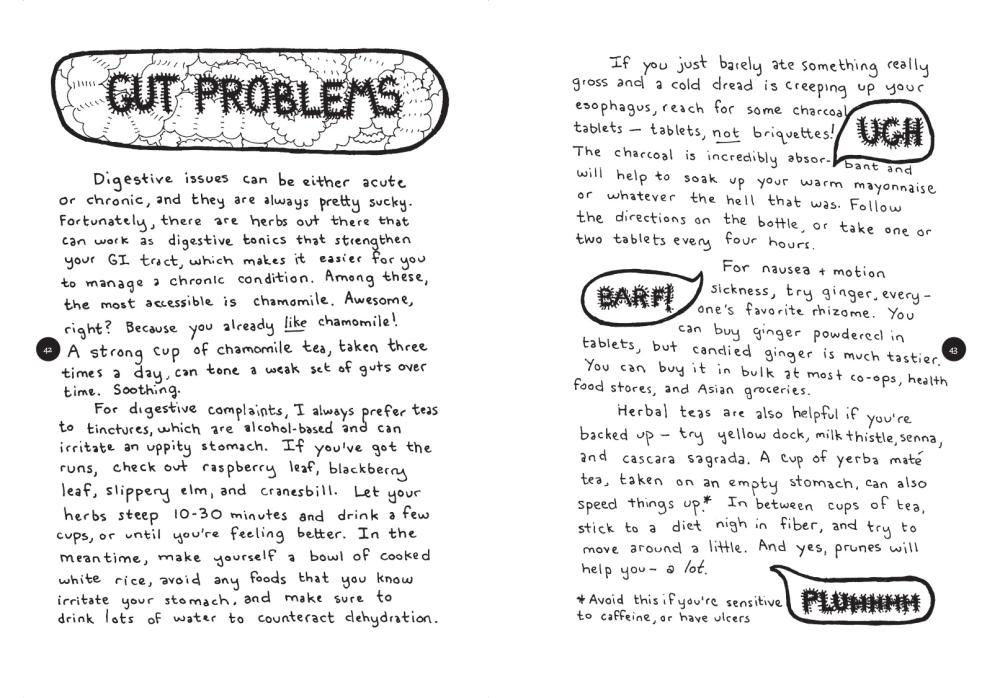 GUT PROBLEMS
Digestive issues can be either acute
or chronic, and they are always pretty sucky.
Fortunately, there are herbs out there that
can work as digestive tonics that strengthen
your GI tract, which makes it easier for you
to manage a chronic condition. Among these,
the most accessible is chamomile. Awesome,
right? Because you already like chamomile!
A strong cup of chamomile tea, taken three
times a day, can tone a weak set of guts over
time. Soothing.
For digestive complaints, I always prefer teas
to tinctures, which are alcohol-based and can
irritate an uppity stomach. If you've got the
runs, check out raspberry leaf, blackberry
leaf, slippery elm, and cranesbill. Let your
herbs steep 10-30 minutes and drink a few
cups, or until you're feeling better. In the
meantime, make yourself a bowl of cooked
white rice, avoid any foods that you know
irritate your stomach, and make sure to
drink lots of water to counteract dehydration.
42
If you just barely ate something really
gross and a cold dread is creeping up your
esophagus, reach for some charcoal
tablets — tablets, not briquettes!
UGH
The charcoal is incredibly absor- bant and
will help to soak up your warm mayonnaise
or whatever the hell that was. Follow
the directions on the bottle, or take one or
two tablets every four hours.
BARF!
For nausea + motion
sickness, try ginger, every-
one's favorite rhizome. You
can buy ginger powdered in
tablets, but candied ginger is much tastier.
You can buy it in bulk at most co-ops, health
food stores, and Asian groceries.
43
Herbal teas are also helpful if you're
backed up — try yellow dock, milk thistle, senna,
and cascara sagrada. A cup of yerba maté
tea, taken on an empty stomach, can also
speed things up.* In between cups of tea,
stick to a diet high in fiber, and try to
move around a little. And yes, prunes will
help you — a lot.
*Avoid this if you're sensitive
to caffeine, or have ulcers
PLUHHHH